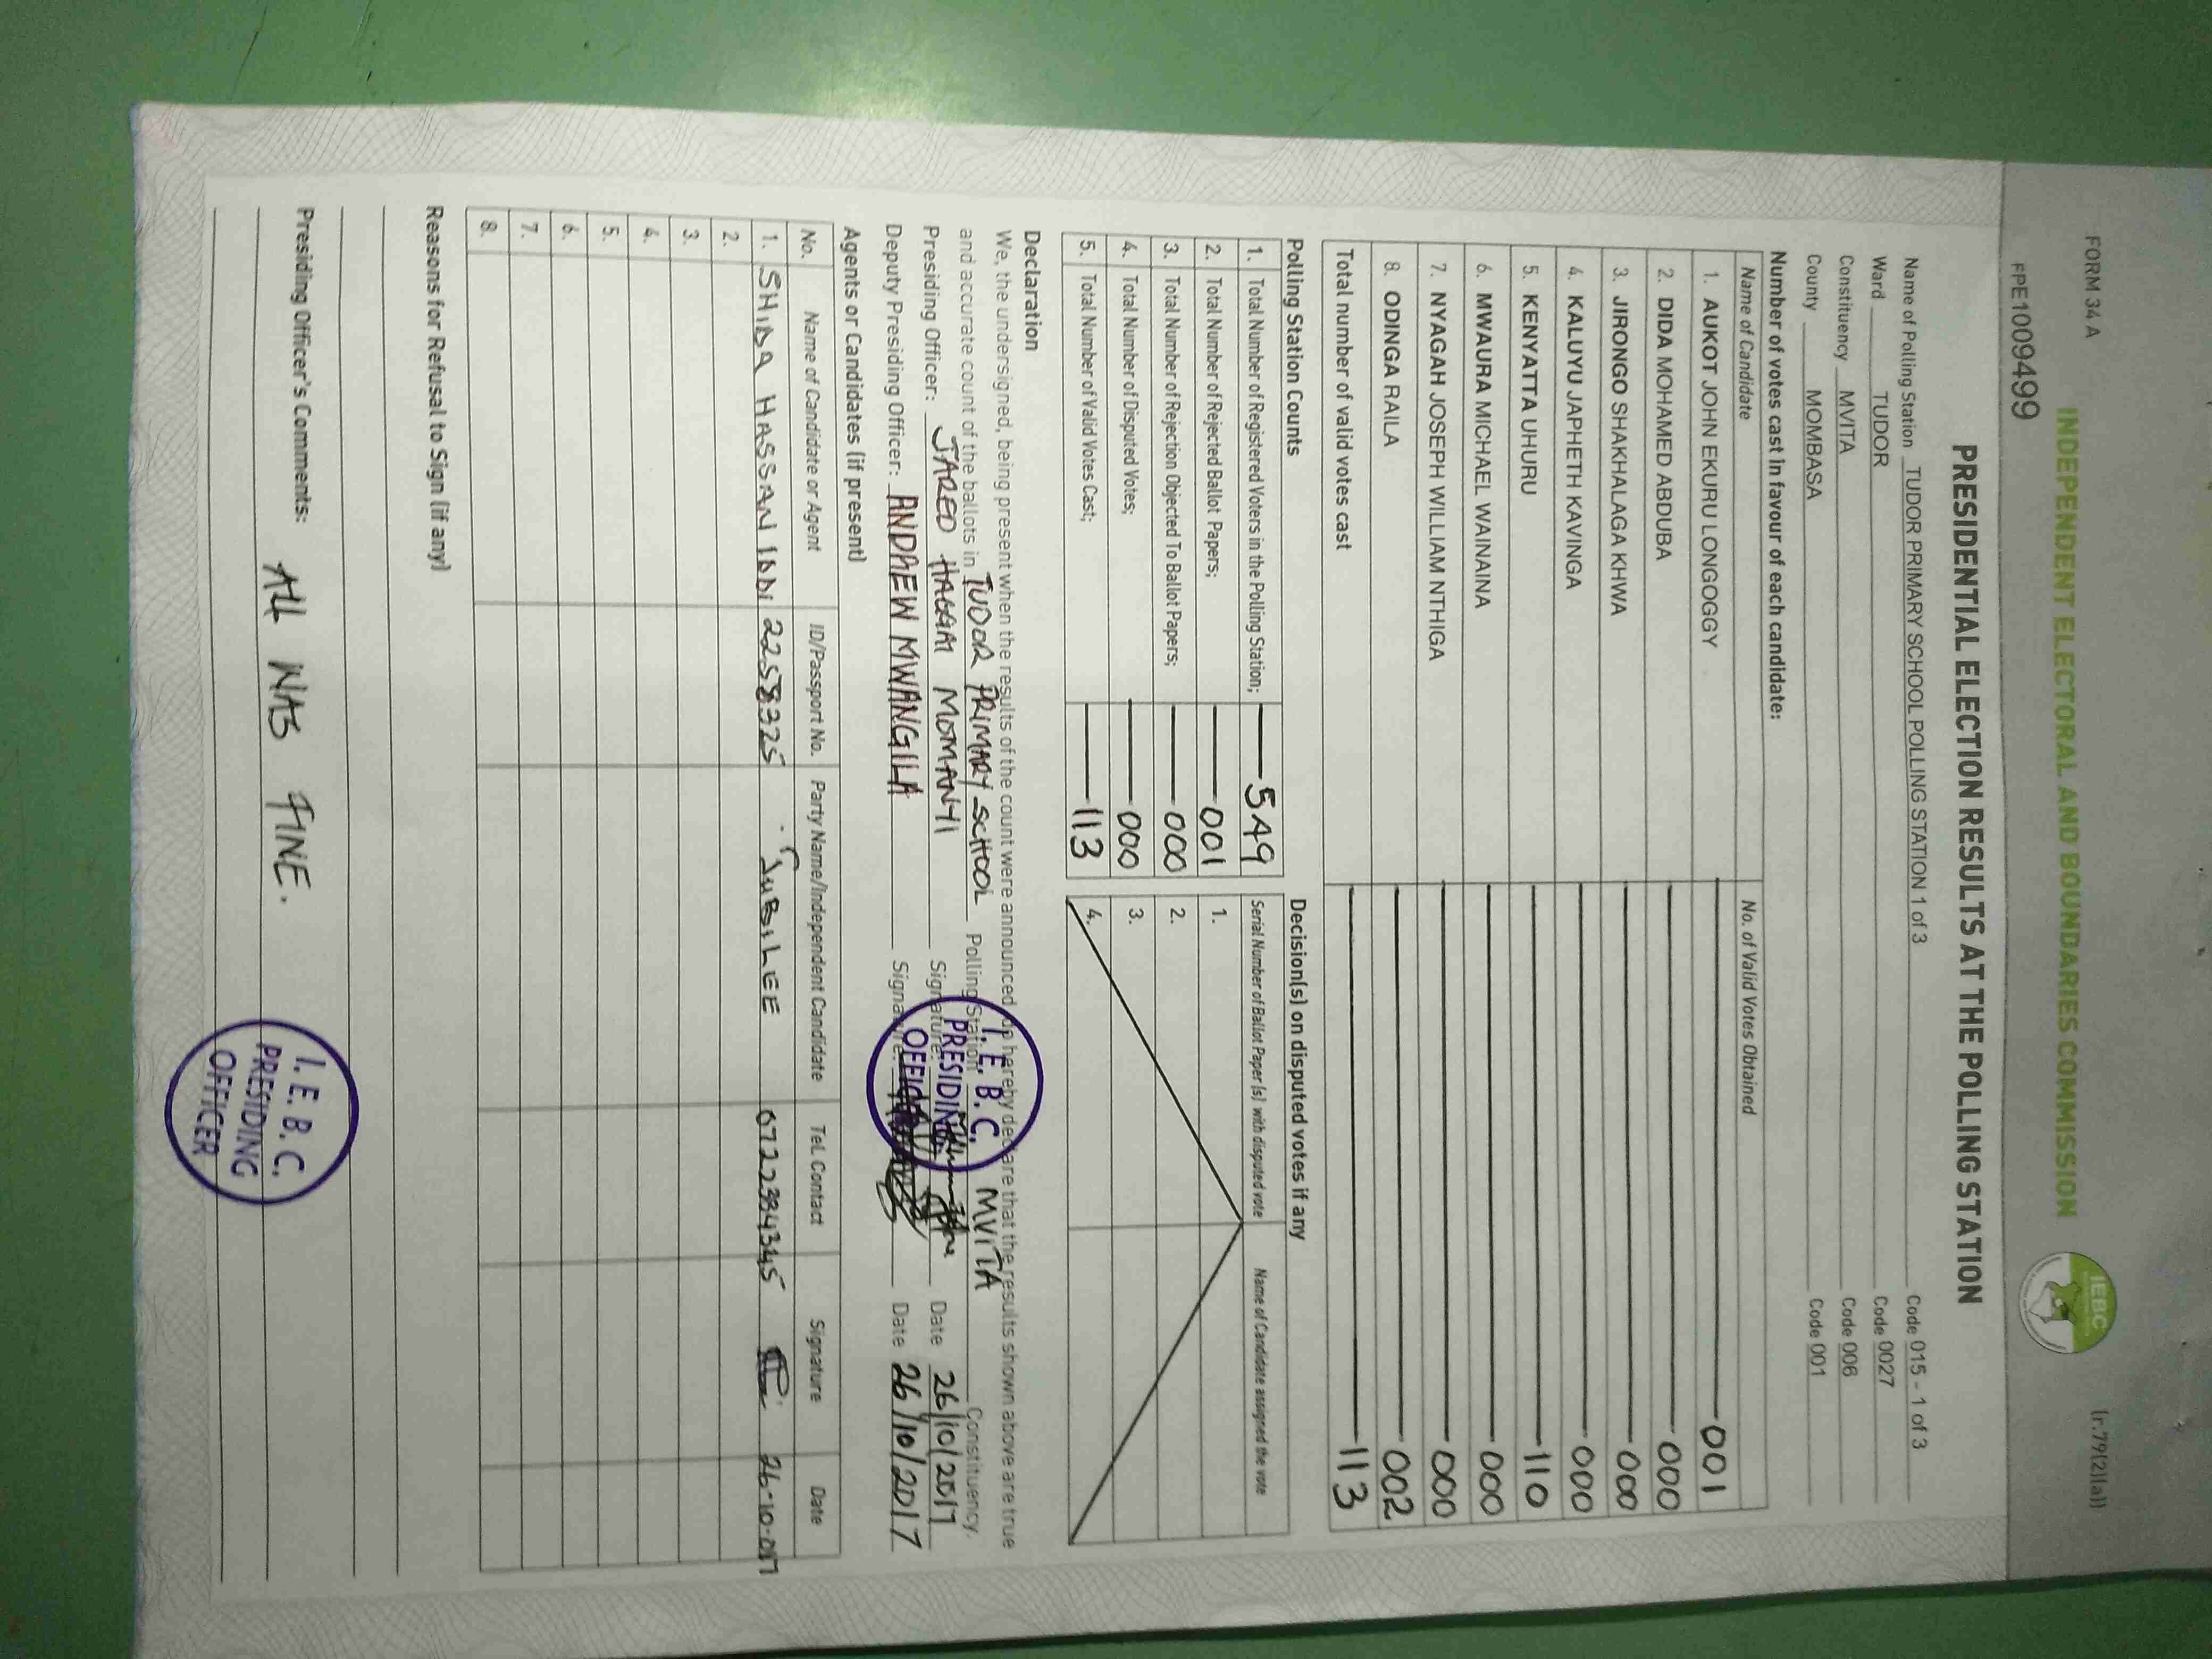 FORM 34 A
INDEPENDENT ELECTORAL AND BOUNDARIES COMMISSION
IEBC
(r.79(2)(a))
PE1009499
PRESIDENTIAL ELECTION RESULTS AT THE POLLING STATION
Name of Polling Station TUDOR PRIMARY SCHOOL POLLING STATION 1 of 3 Code 015 - 1 of 3
Ward TUDOR Code 0027
Constituency MVITA Code 006
County MOMBASA Code 001
Number of votes cast in favour of each candidate:
Name of Candidate No. of Valid Votes Obtained
1. AUKOT JOHN EKURU LONGOGGY 001
2. DIDA MOHAMED ABDUBA 000
3. JIRONGO SHAKHALAGA KHWA 000
4. KALUYU JAPHETH KAVINGA 000
5. KENYATTA UHURU 110
6. MWAURA MICHAEL WAINAINA 000
7. NYAGAH JOSEPH WILLIAM NTHIGA 000
8. ODINGA RAILA 002
Total number of valid votes cast 113
Polling Station Counts
1. Total Number of Registered Voters in the Polling Station; 549
2. Total Number of Rejected Ballot Papers; 001
3. Total Number of Rejection Objected To Ballot Papers; 000
4. Total Number of Disputed Votes; 000
5. Total Number of Valid Votes Cast; 113
Decision(s) on disputed votes if any
Serial Number of Ballot Paper(s) with disputed vote Name of Candidate assigned the vote
1.
2.
3.
4.
Declaration
We, the undersigned, being present when the results of the count were announced do hereby declare that the results shown above are true
and accurate count of the ballots in TUDOR PRIMARY SCHOOL Polling Station MVITA Constituency.
Presiding Officer: JARED HAGGAI MOMANYI Signature: Date 26/10/2017
Deputy Presiding Officer: ANDREW MWANGILA Signature: Date 26/10/2017
I.E.B.C.
PRESIDING
OFFICER
Agents or Candidates (if present)
No. Name of Candidate or Agent ID/Passport No. Party Name/Independent Candidate Tel. Contact Signature Date
1. SHIDA HASSAN IDDI 22583325 JUBILEE 26-10-017
2.
3.
4.
5.
6.
7.
8.
Reasons for Refusal to Sign (if any)
Presiding Officer's Comments:
All WAS FINE.
I.E.B.C.
PRESIDING
OFFICER